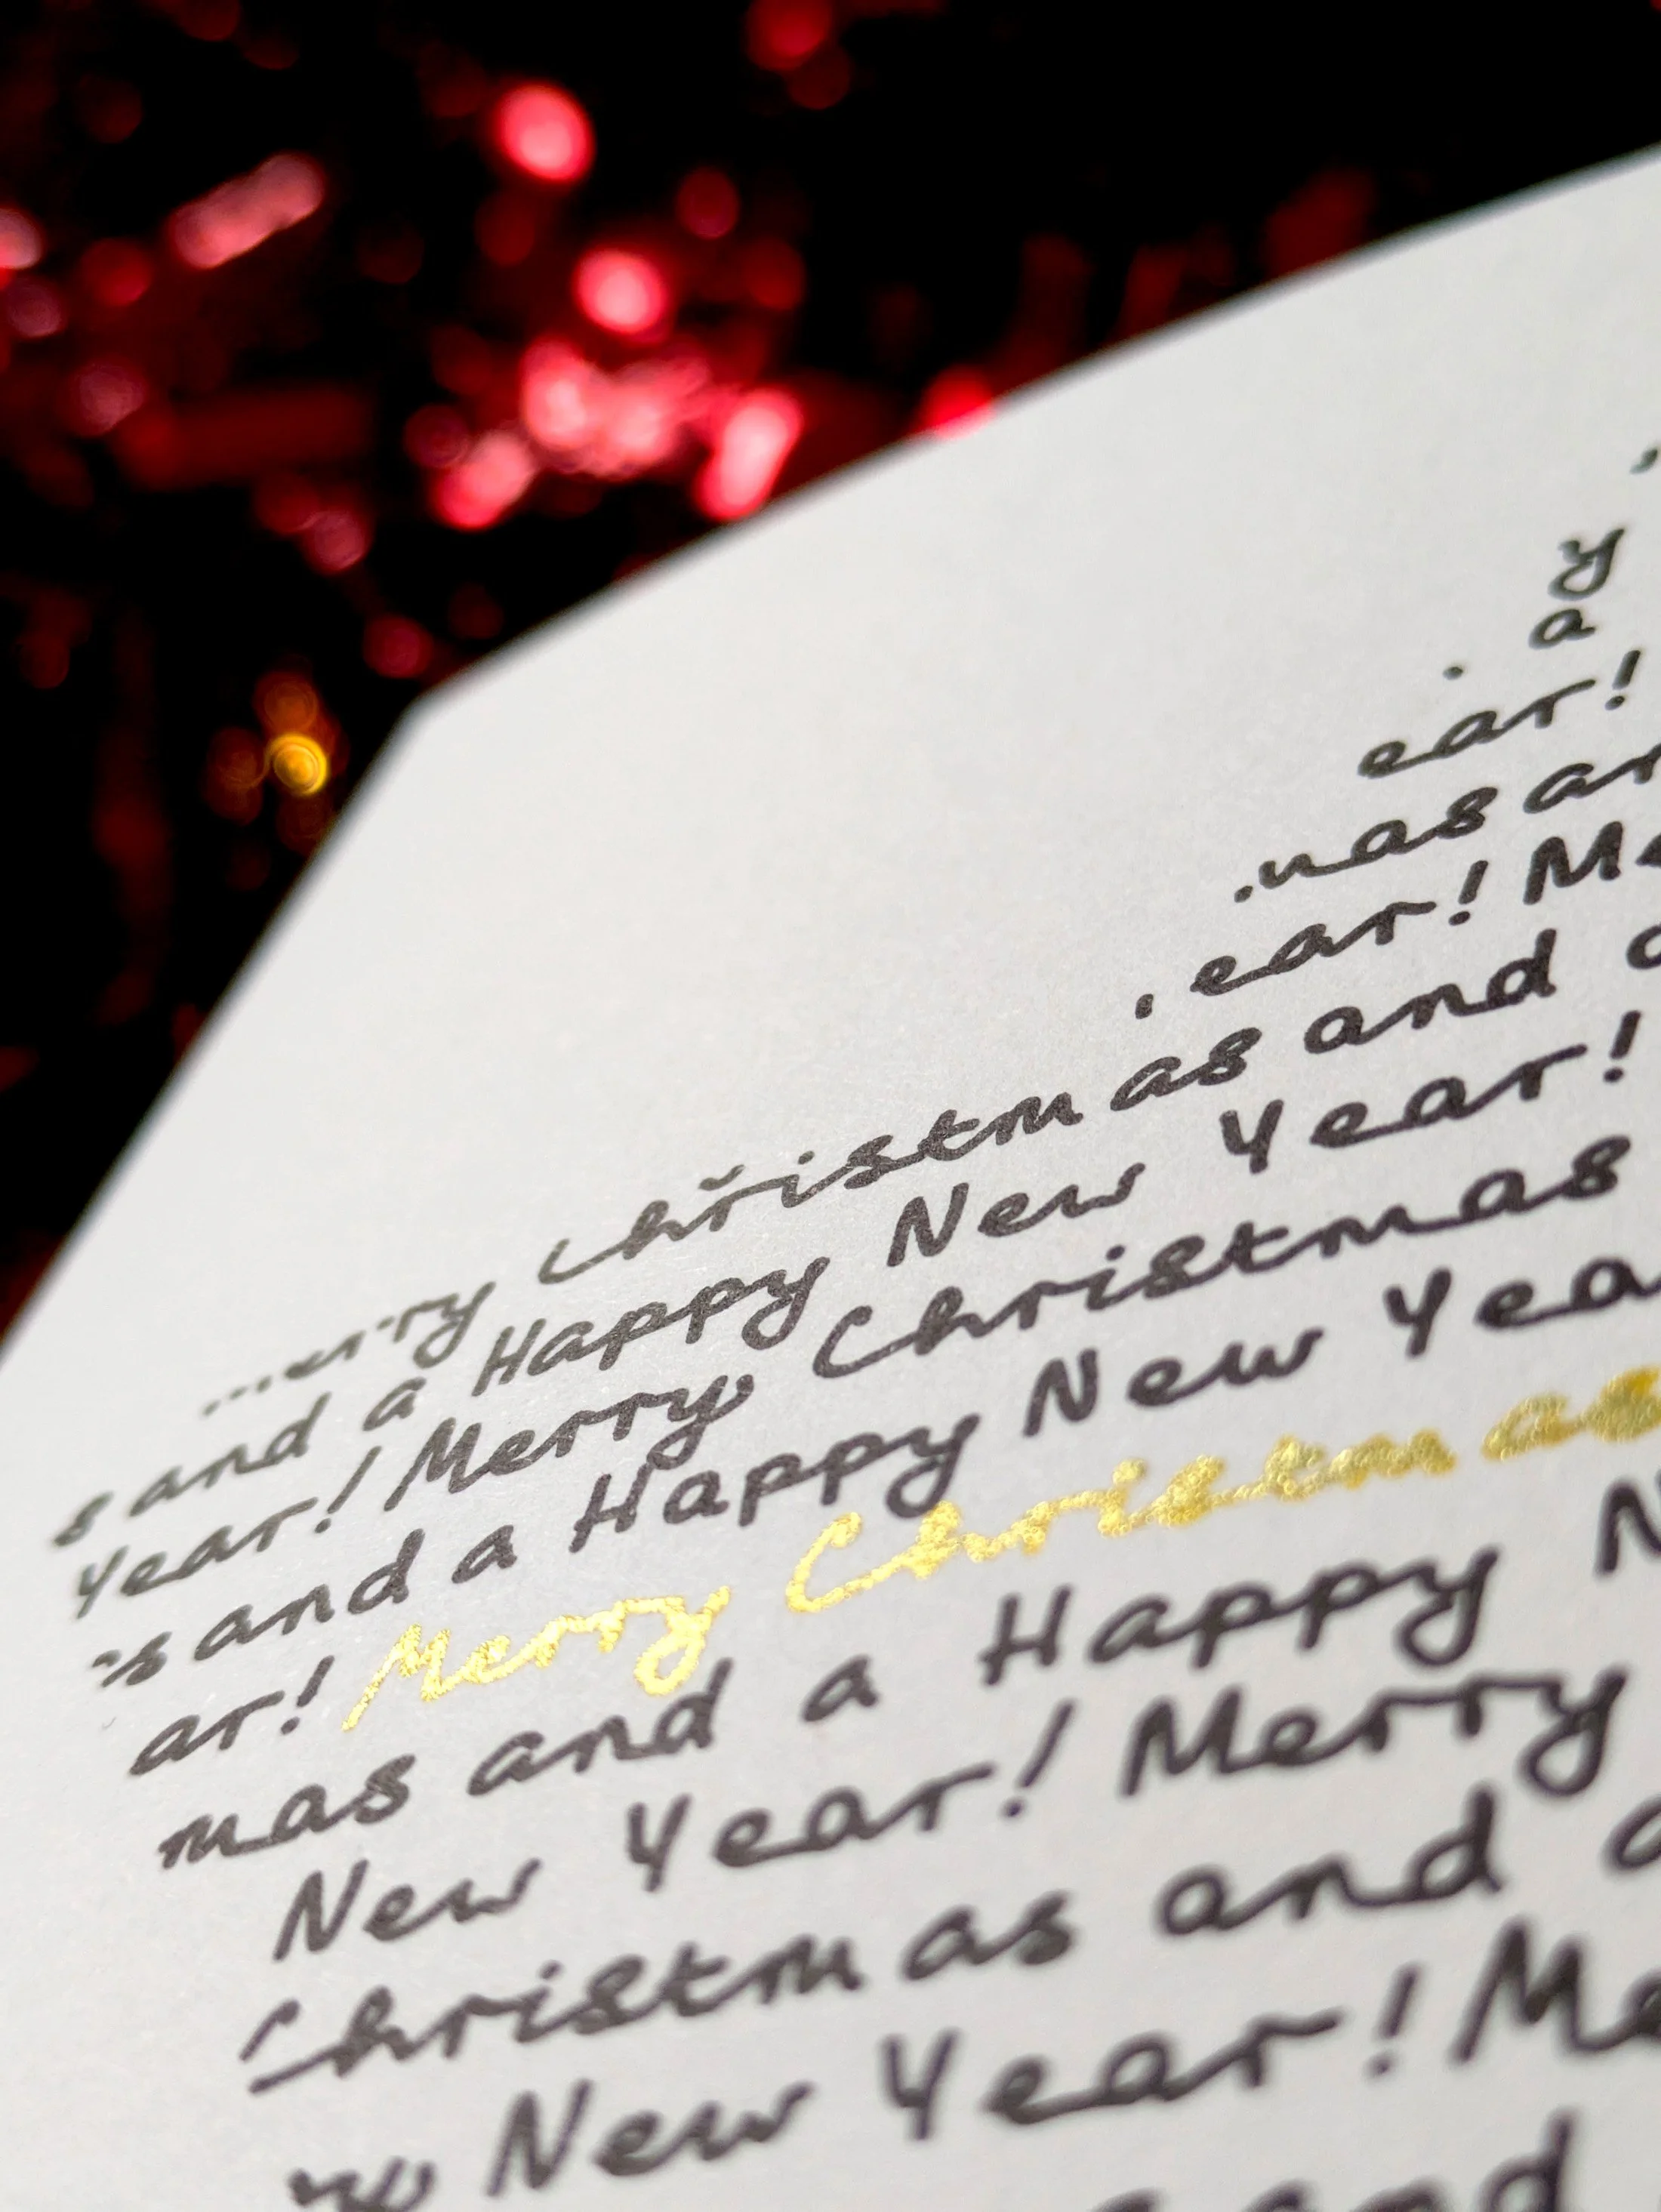 y
a
ear!
mas an
ear! Me
erry Christmas and a
s and a Happy New Year!
Year! Merry Christmas
s and a Happy New Yea
ar! Merry Christmas
mas and a Happy N
New Year! Merry
Christmas and a
y New Year! Me
s and